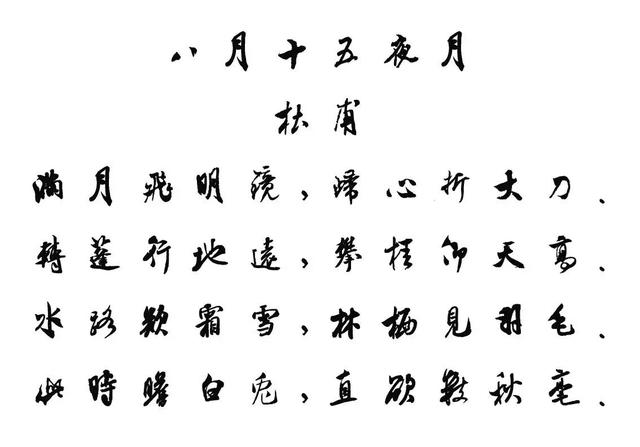 八月十五夜月
杜甫
滿月飛明鏡,歸心折大刀.
轉蓬行地遠,攀桂仰天高.
水路疑霜雪,林栖見羽毛.
此時瞻白兔,直欲數秋毫.